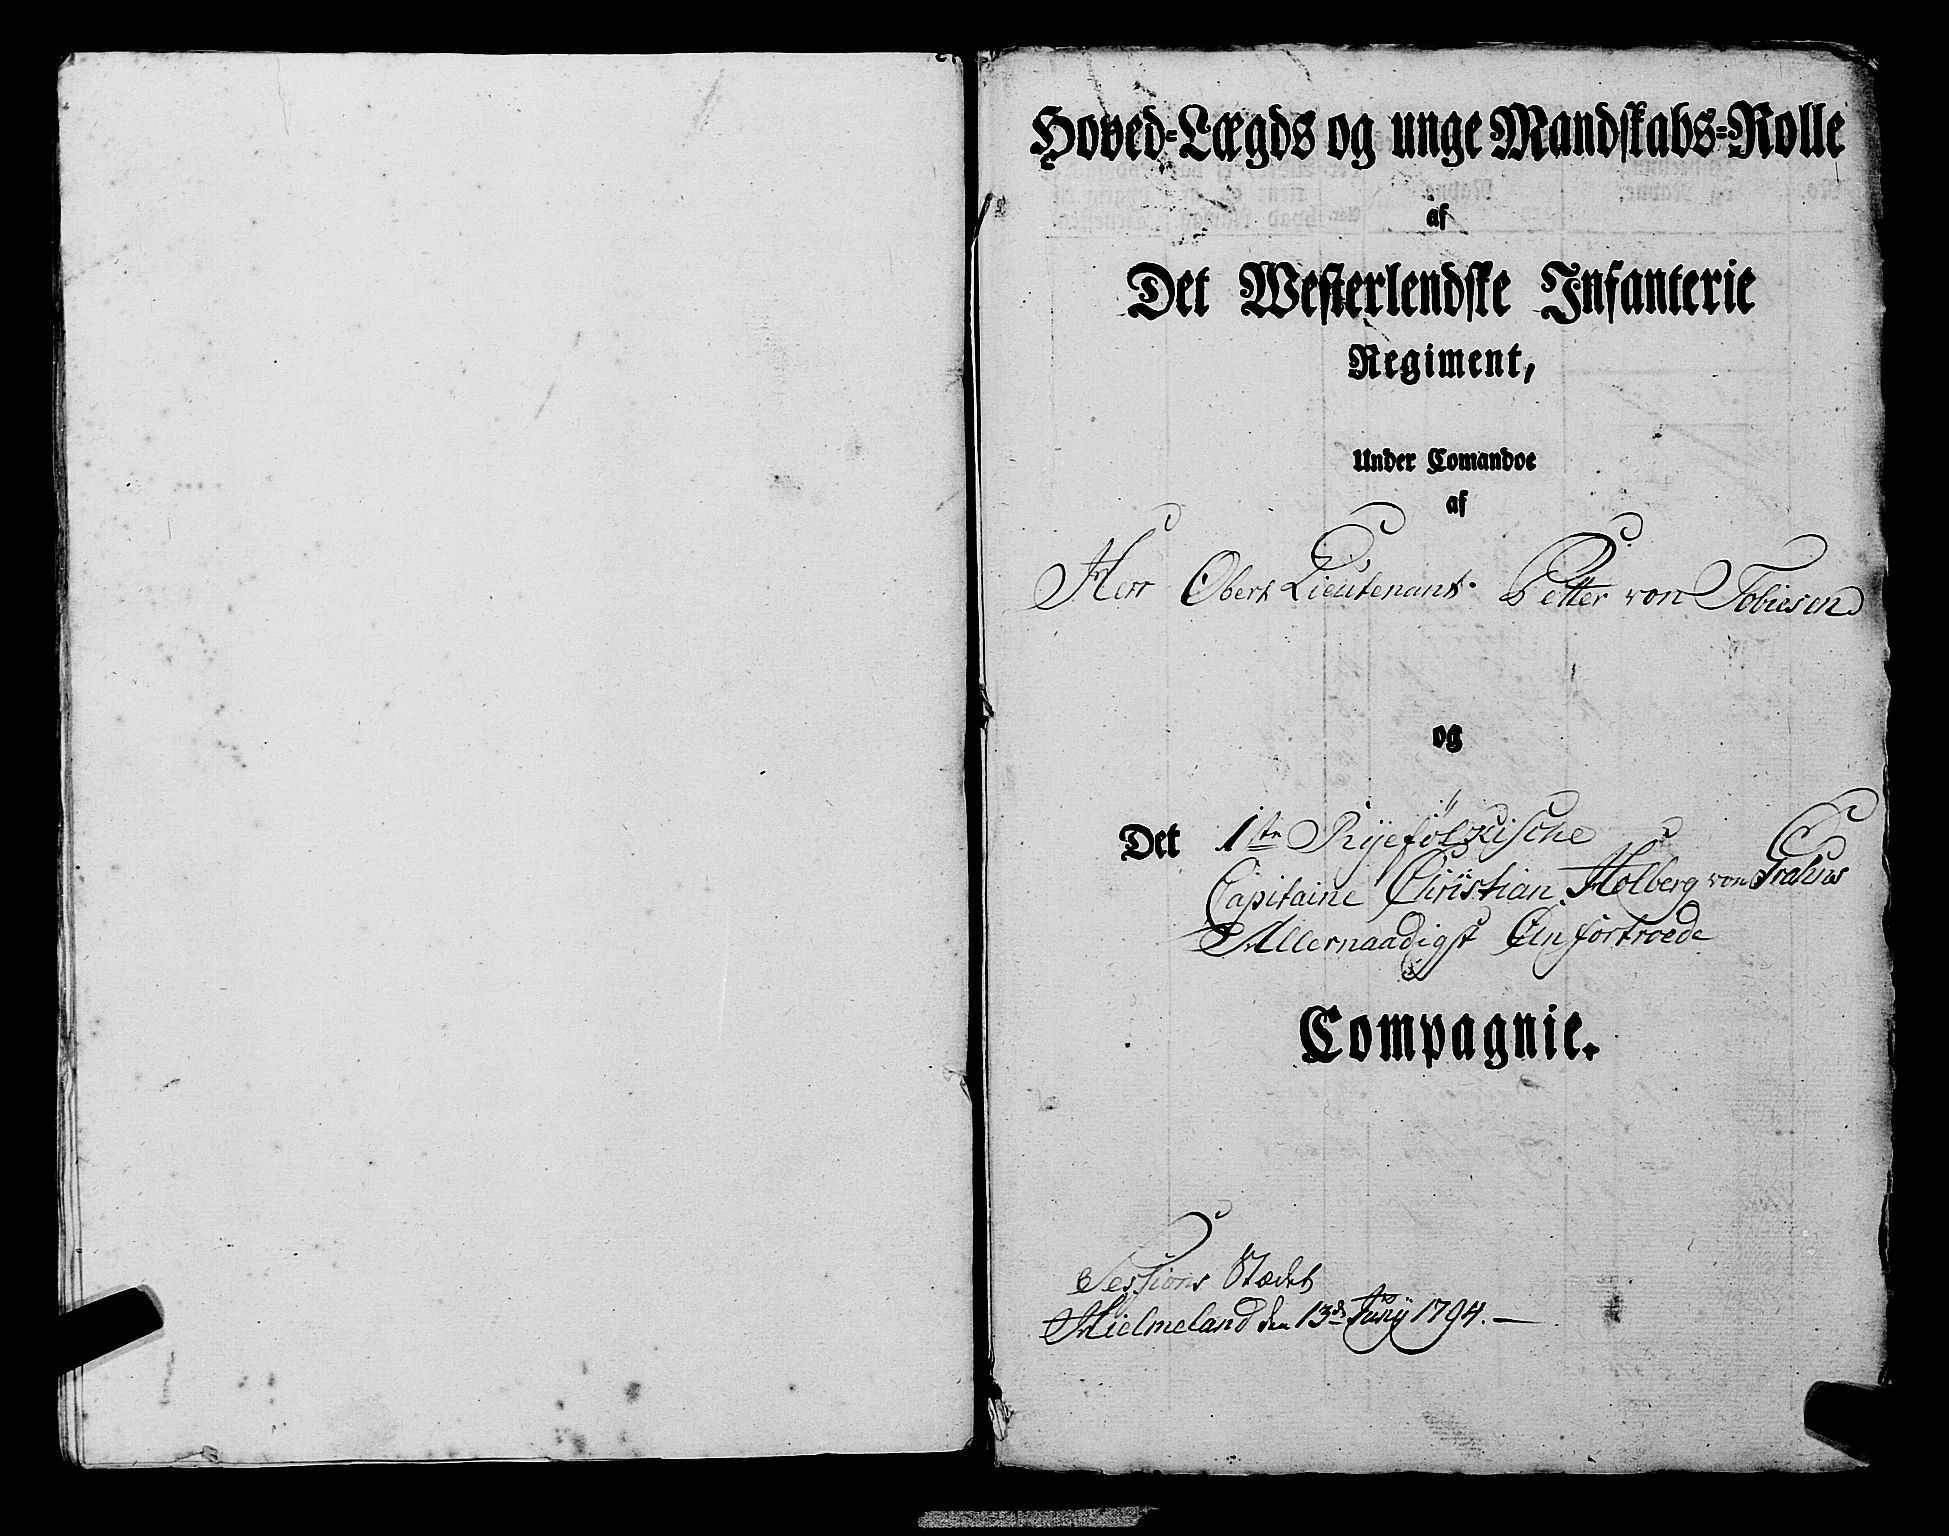 Hoved-Lægds og unge Mandskabs-Rolle
af
Det Westerlendske Infanterie
Regiment,
Under Comandoe
af
Herr Obert Lieutenant Petter von Tobiesen
og
Det 1ste Ryefölkische
Capitaine Christian Holberg von
Allernaadigst Anfortroede
Compagnie.
Sessions Stædet
Hielmeland den 13de Junÿ 1794.